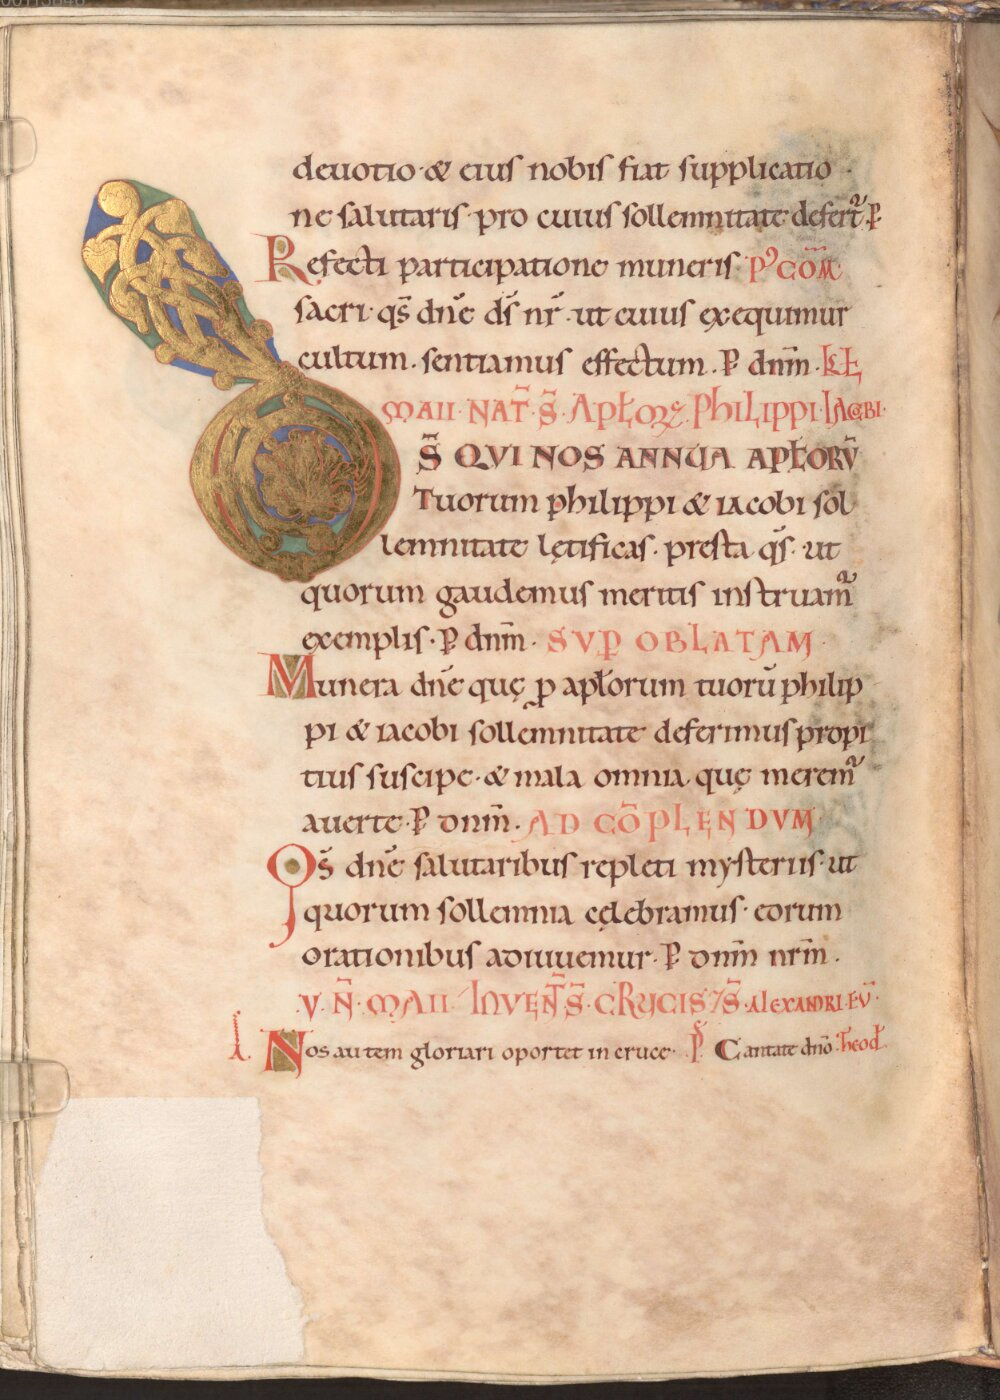 deuotio · & eius nobis fiat supplicatio
ne salutaris · pro cuius sollemnitate defert᷑ · ꝑ
Refecti participatione muneris · Pꝰ CŌM
sacri · qs̄ dn̄e ds̄ nr̄ · ut cuius exequimur
cultum · sentiamus effectum · ꝑ dnm̄ · KƚE
MAII · NAT̄ · S̄ · APƚOꝜ · PHILIPPI · IACOBI ·
D̄S QVI NOS ANNUA APƚORV̄
Tuorum philippi & iacobi sol
lemnitate lętificas · presta qs̄ · ut
quorum gaudemus meritis instruam᷑
exemplis · ꝑ dnm̄ · SVꝑ OBLATAM ·
Munera dn̄e quę ꝓ apƚorum tuorū philip
pi & iacobi sollemnitate deferimus propi
tius suscipe · & mala omnia quę merem᷑
auerte · ꝑ dnm̄ · AD CŌPLENDVM
Qs̄ dn̄e salutaribus repleti mysteriis · ut
quorum sollemnia cęlebramus · eorum
orationibus adiuuemur · ꝑ dnm̄ nrm̄ ·
· V · N̄ · MAII · INVENT̄ S̄ · CRUCIS ⁊ S̄ · ALEXANDRI · EV̄ ·
I. Nos autem gloriari oportet in cruce · P̄s · Cantate dn̄o · Theod̄